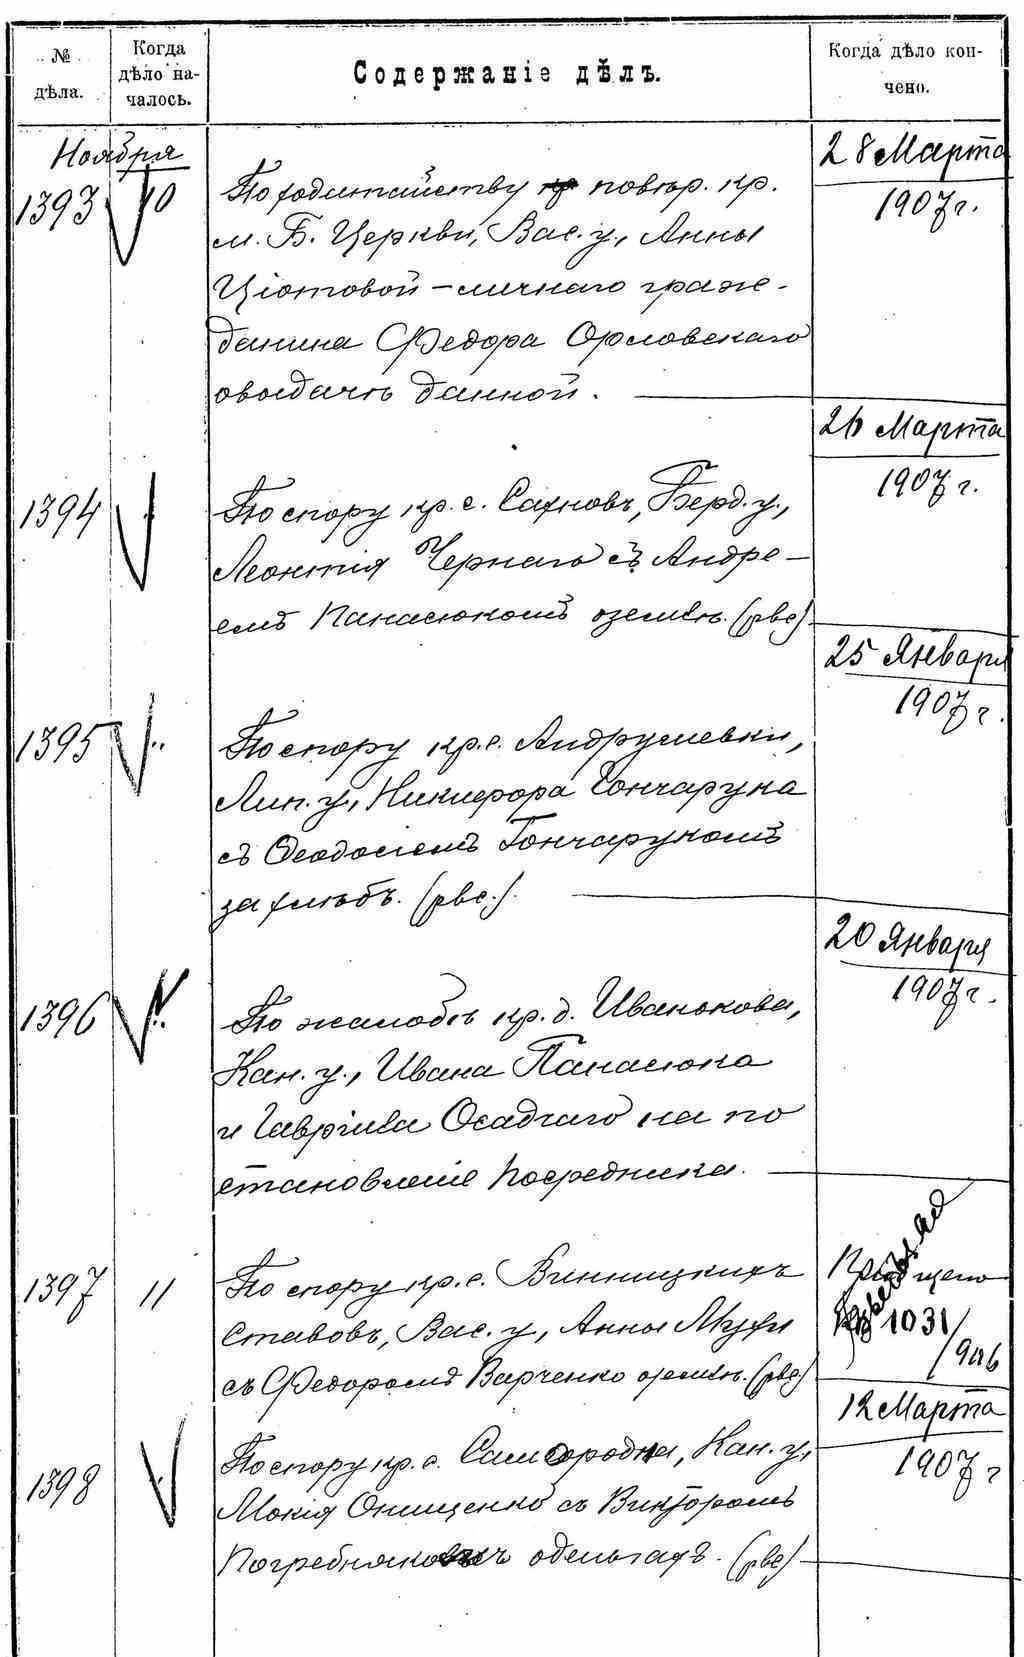 № дѣла.
Когда дѣло на-
чалось.
Содержаніе дѣлъ.
Когда дѣло кон-
чено.
Ноября
1393
10
По ходатайству повѣр. кр.
м. Б. Церкви, Вас. у., Анны
Ціотовой – личнаго граж-
данина Федора Орловскаго
о выдачѣ данной.
28 Марта
1907 г.
1394
По спору кр. с. Сахновъ, Берд. у.,
Леонтія Чернаго съ Андре-
емъ Панасюкомъ о землѣ. (рвс)
26 Марта
1907 г.
1395
По спору кр. с. Андрушевки,
Лип. у., Никифора Гончарука
съ Ѳеодосіемъ Гончарукомъ
за хлѣбъ. (рвс.).
25 Января
1907 г.
1396
По жалобѣ кр. д. Иванькова,
Кан. у., Ивана Панасюка
и Гавріила Осадчаго на по
становленіе Посредника.
20 Января
1907 г.
1397
11
По спору кр. с. Винницкихъ
Ставовъ, Вас. у., Анны Мухи
съ Федоромъ Варченко о землѣ. (рвс)
1031/906
1398
По спору кр. с. Самородни, Кан. у.,
Мокія Онищенко съ Викторомъ
о деньгахъ. (рвс)
12 Марта
1907 г